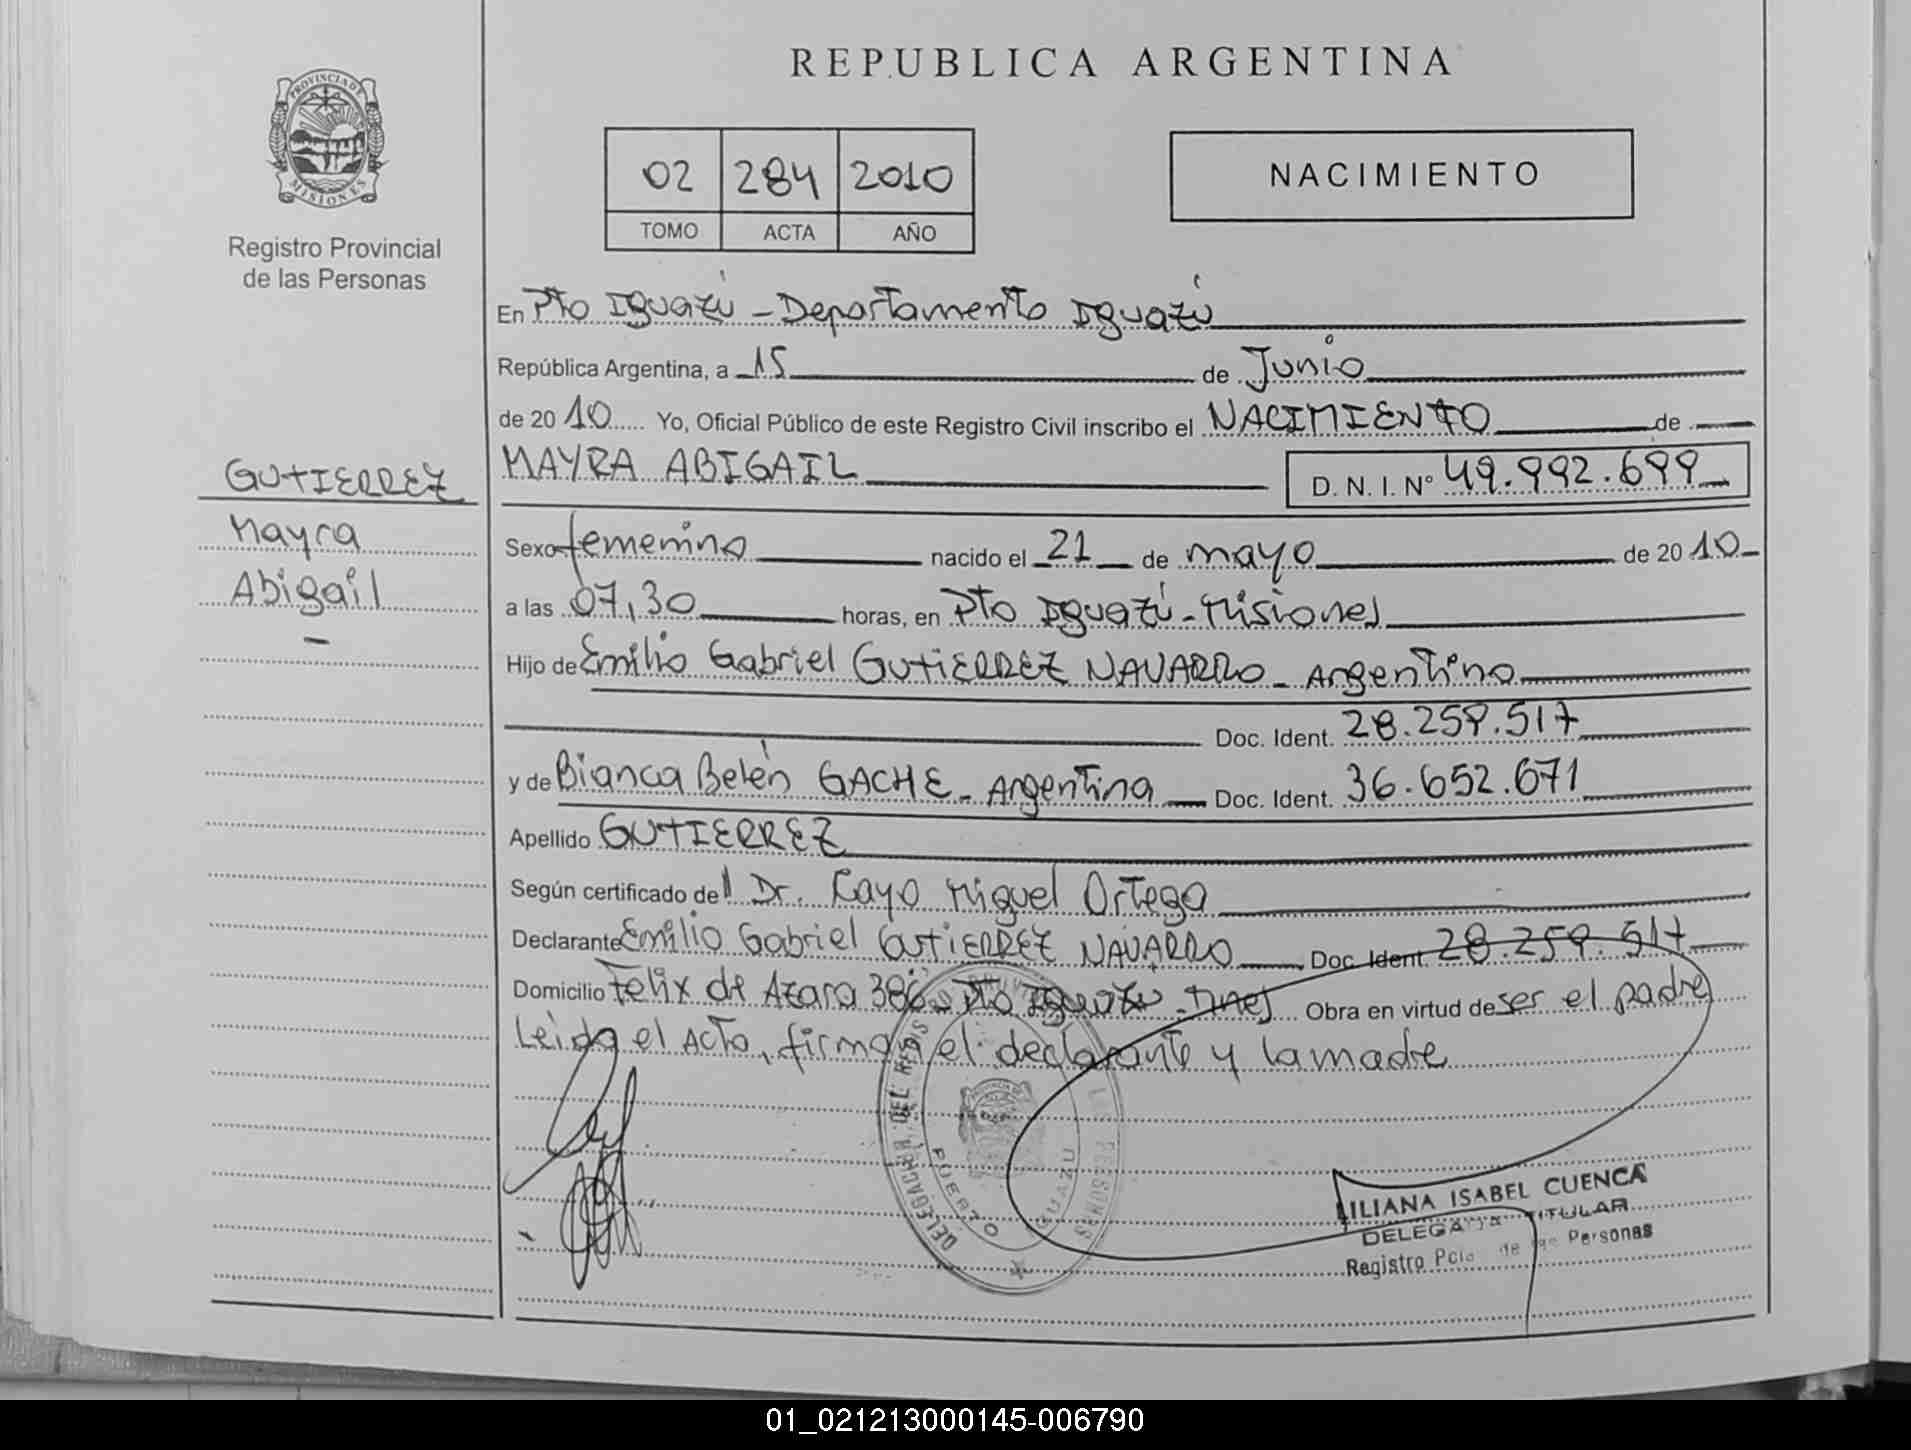 REPUBLICA ARGENTINA
PROVINCIA DE
MISIONES
Registro Provincial
de las Personas
02 284 2010
TOMO ACTA AÑO
NACIMIENTO
En Pto Iguazú - Departamento Iguazú
República Argentina, a 15 de Junio
de 2010 Yo, Oficial Público de este Registro Civil inscribo el NACIMIENTO de
MAYRA ABIGAIL D. N. I. N° 49.992.699
GUTIERREZ
Mayra
Abigail
-
Sexo femenino nacido el 21 de mayo de 2010
a las 07,30 horas, en Pto Iguazú - Misiones
Hijo de Emilio Gabriel GUTIERREZ NAVARRO - Argentino
Doc. Ident. 28.259.517
y de Bianca Belén GACHE - Argentina Doc. Ident. 36.652.671
Apellido GUTIERREZ
Según certificado del Dr. Cayo Miguel Ortega
Declarante Emilio Gabriel GUTIERREZ NAVARRO Doc. Ident. 28.259.517
Domicilio Felix de Azara 386 Pto Iguazú - Mnes Obra en virtud de ser el padre
Leida el Acta, firman el declarante y la madre
DELEGACION DEL REGISTRO PERSONAS
PUERTO IGUAZU
LILIANA ISABEL CUENCA
DELEGADA TITULAR
Registro Pcial. de las Personas
01_021213000145-006790